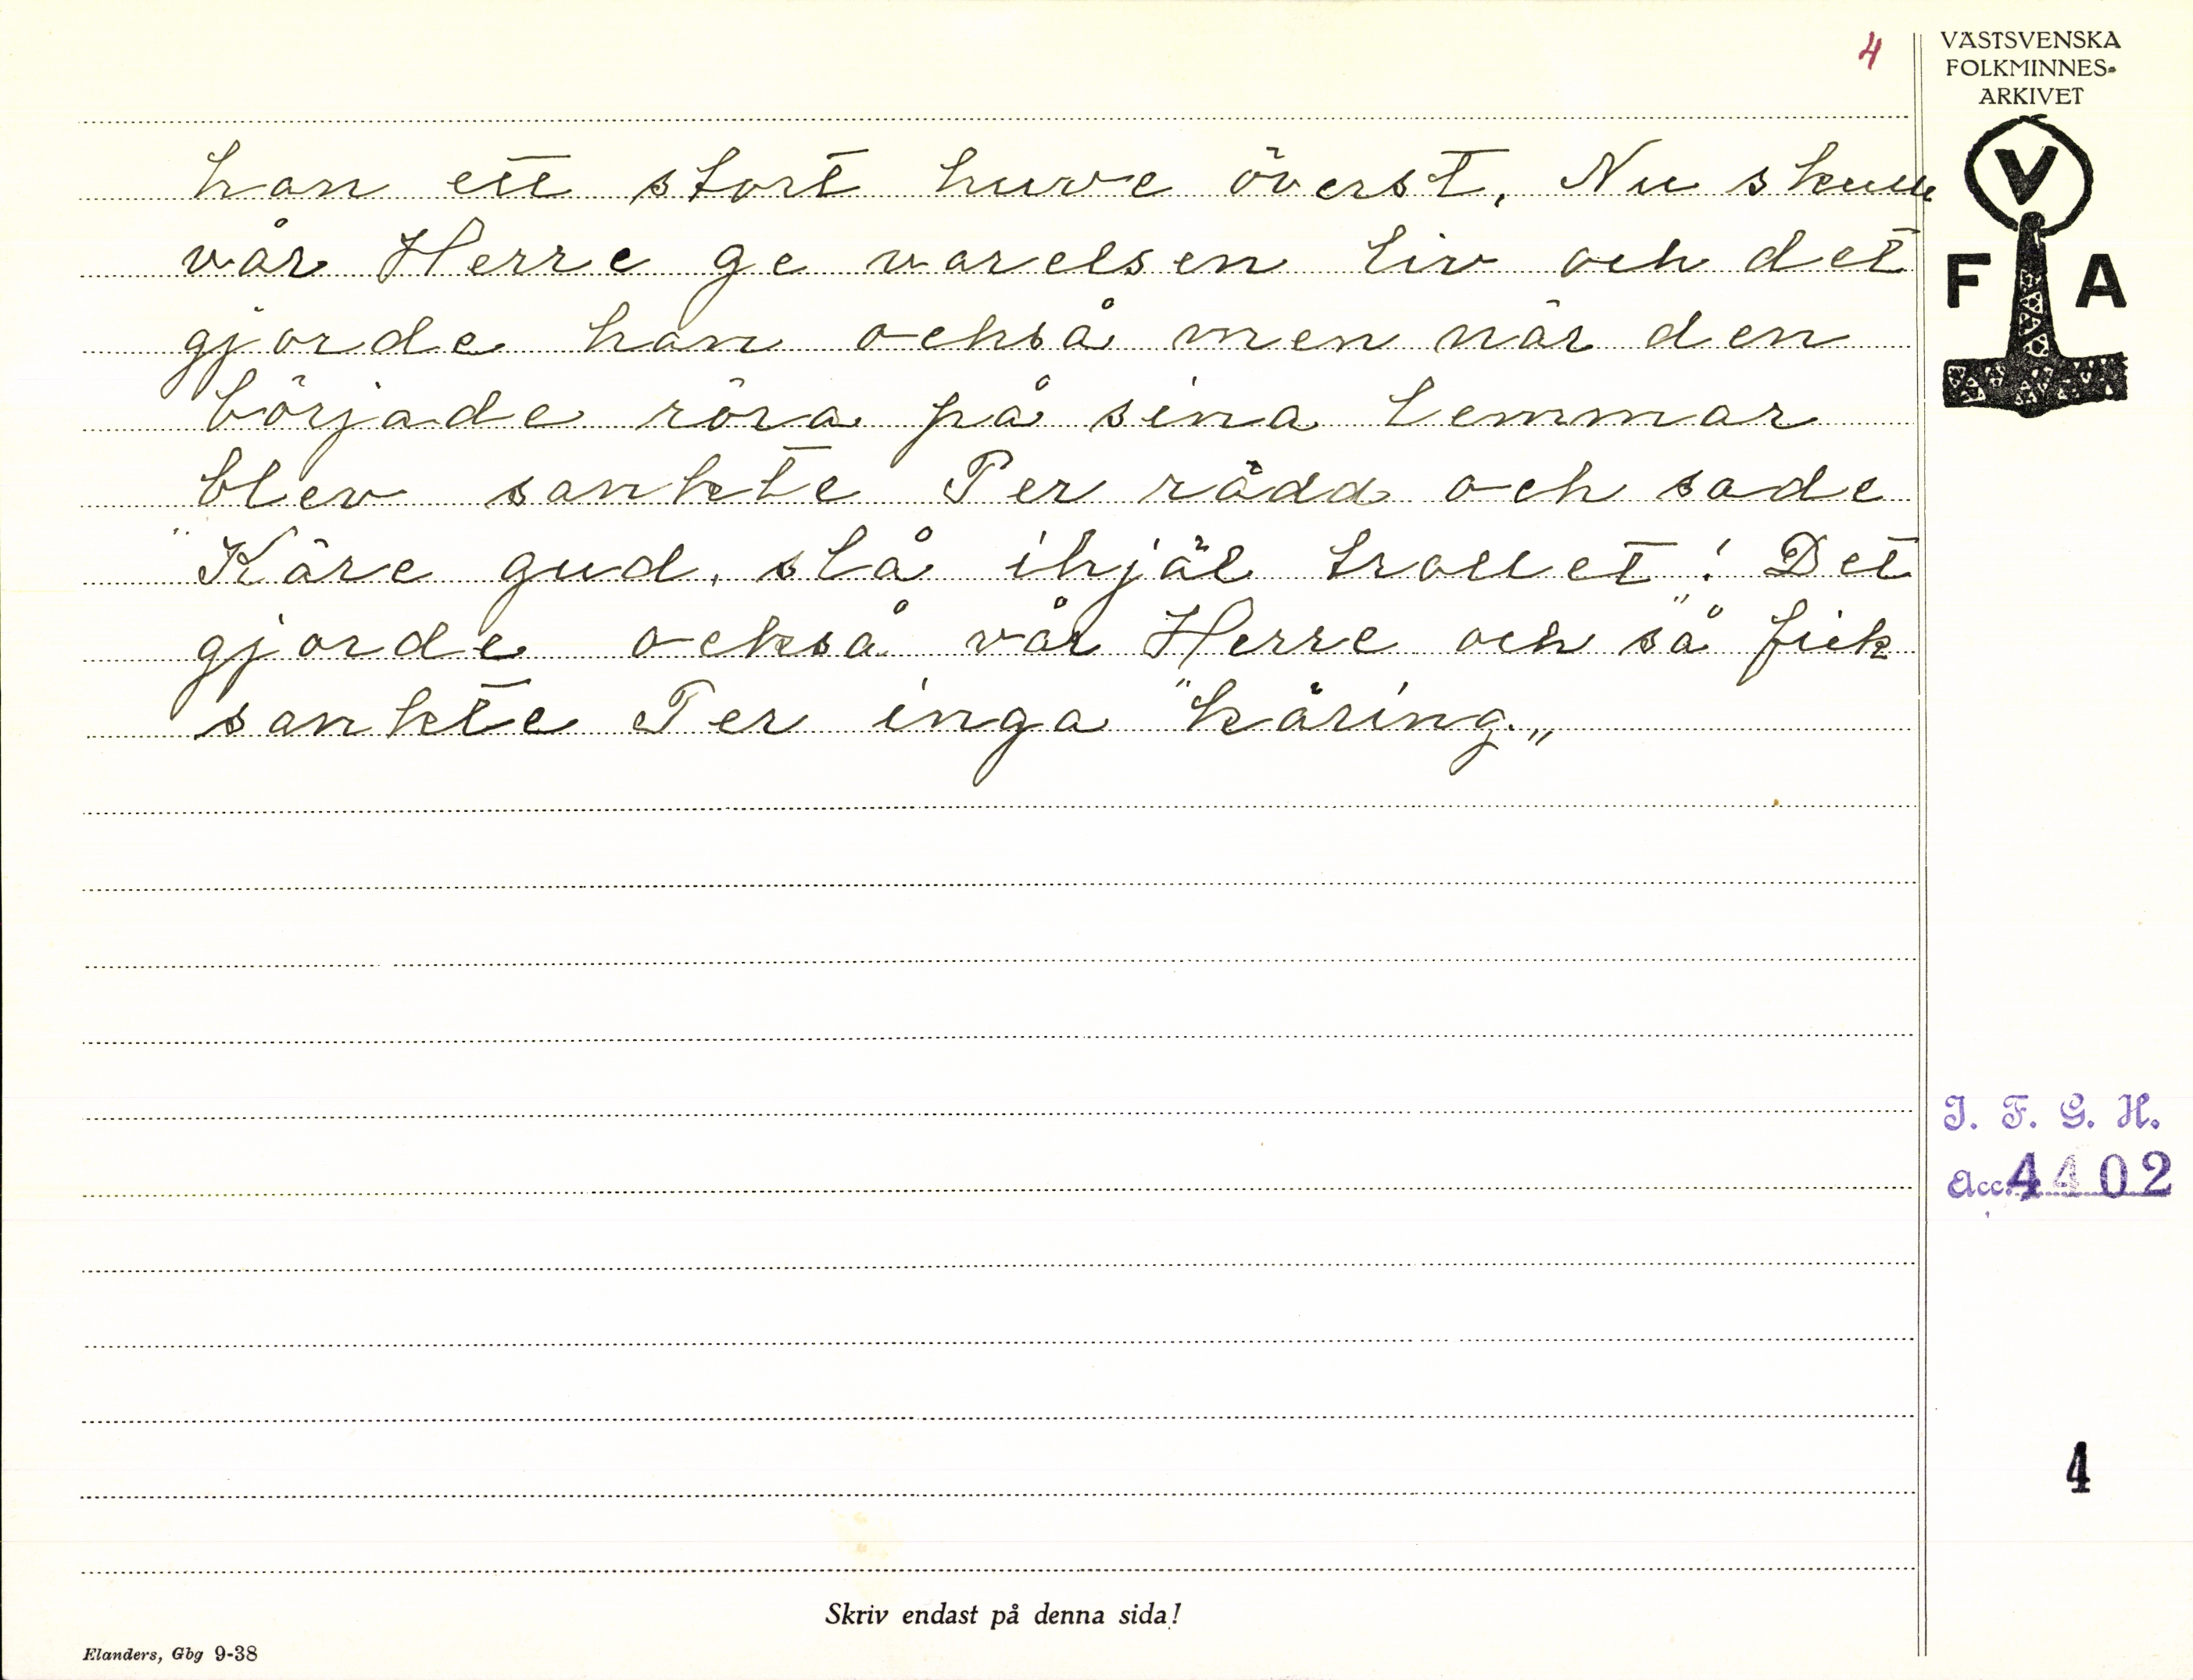 4
VÄSTSVENSKA
FOLKMINNES-
ARKIVET
V
F A
han ett stort huve överst. Nu skulle
vår Herre ge varelsen liv och det
gjorde han också men när den
började röra på sina lemmar
blev sankte Per rädd och sade
"Käre gud, slå ihjäl trollet!" Det
gjorde också vår Herre och så fick
sankte Per inga "käring."
I. F. G. H.
Acc. 4402
4
Skriv endast på denna sida!
Elanders, Gbg 9-38